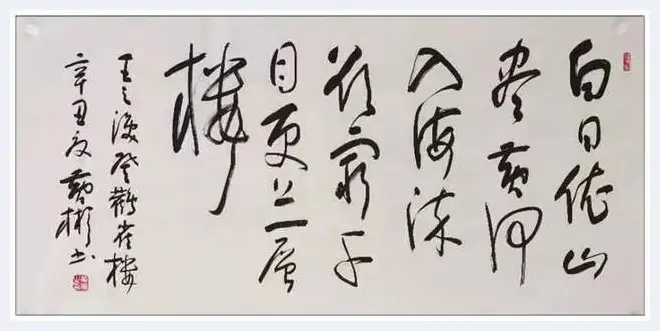 白日依山
尽黄河
入海流
欲穷千
目更上一层
楼
王之涣登鹳雀楼
辛丑夏黄彬书